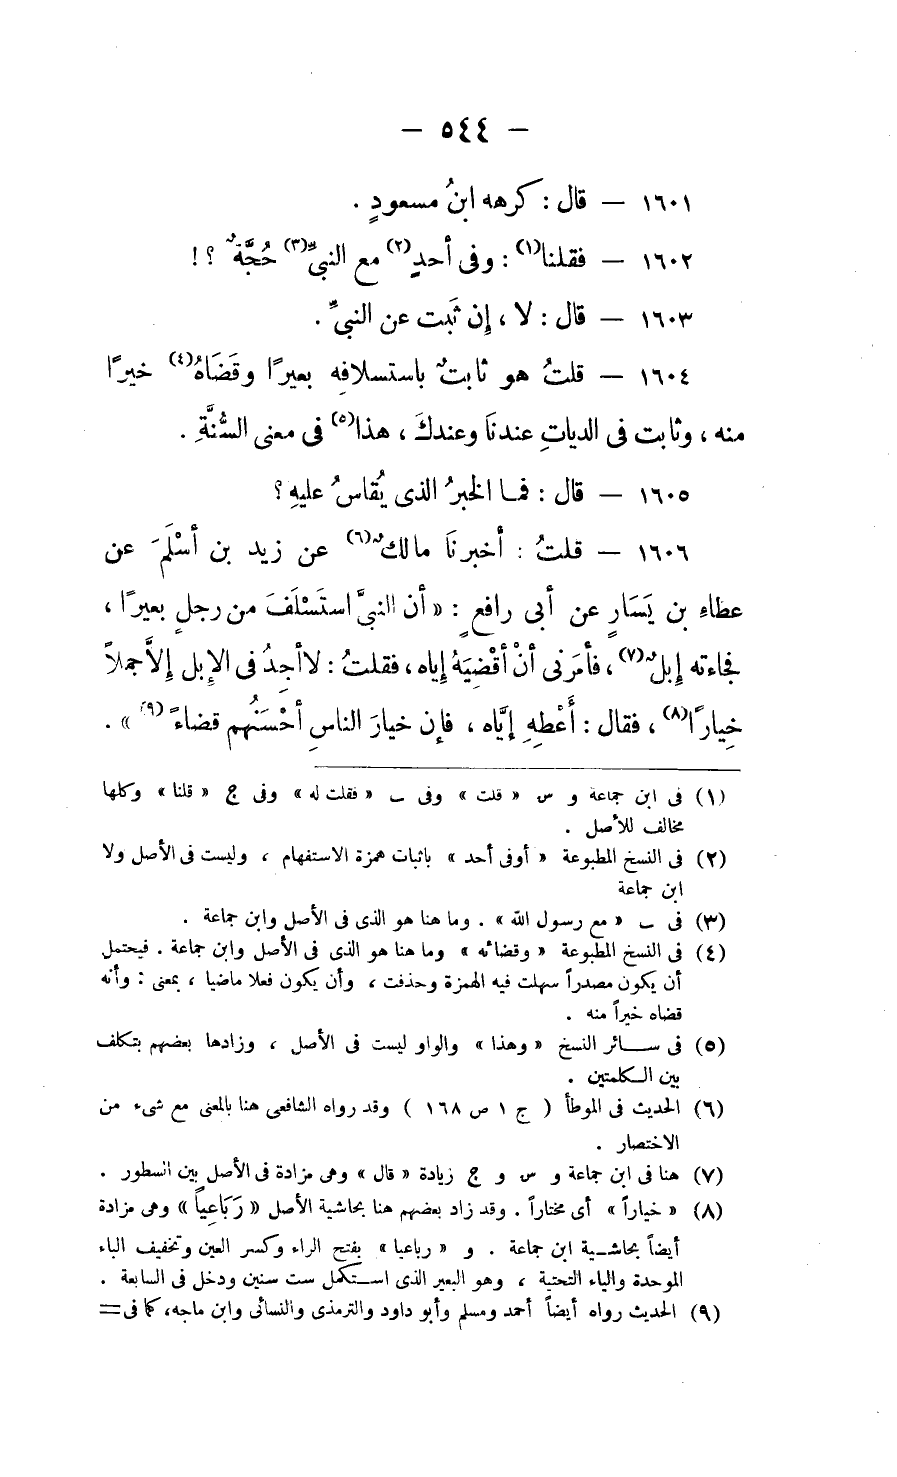 — ٥٤٤ —
١٦٠١ — قال : كرهه ابنُ مسعودٍ .
١٦٠٢ — فقلنا(١) : وفى أحدٍ(٢) مع النبىِّ(٣) حُجَّةٌ ؟ !
١٦٠٣ — قال : لا ، إن ثَبت عن النبىِّ .
١٦٠٤ — قلتُ هو ثابتٌ باستسلافِه بعيرًا وقَضَاهُ(٤) خيرًا
منه ، وثابت فى الدياتِ عندنَا وعندكَ ، هذا(٥) فى معنى السُّنَّةِ .
١٦٠٥ — قال : فمــا الخبرُ الذى يُقاسُ عليهِ ؟
١٦٠٦ — قلتُ : أخبرنَا مالكٌ(٦) عن زيد بن أسْلَمَ عن
عطاءِ بن يَسَارٍ عن أبى رافعٍ : « أن النبىَّ استَسْلَفَ من رجلٍ بعيرًا ،
فجاءته إبلٌ(٧) ، فأمَرَنى أنْ أقْضِيَهُ إياه ، فقلتُ : لاأجِدُ فى الإبل إلاَّ جملاً
خِيارًا(٨) ، فقال : أَعْطِهِ إيَّاه ، فإن خيارَ الناسِ أحْسَنُهم قضاءً(٩) » .
(١) فى ابن جماعة و س « قلت » وفى ب « فقلت له » وفى ج « قلنا » وكلها
مخالف للأصل .
(٢) فى النسخ المطبوعة « أوفى أحد » باثبات همزة الاستفهام ، وليست فى الأصل ولا
ابن جماعة
(٣) فى ب « مع رسول الله » . وما هنا هو الذى فى الأصل وابن جماعة .
(٤) فى النسخ المطبوعة « وقضائه » وما هنا هو الذى فى الأصل وابن جماعة . فيحتمل
أن يكون مصدراً سهلت فيه الهمزة وحذفت ، وأن يكون فعلا ماضيا ، بمعنى : وأنه
قضاه خيراً منه .
(٥) فى ســـائر النسخ « وهذا » والواو ليست فى الأصل ، وزادها بعضهم بتكلف
بين الـكلمتين .
(٦) الحديث فى الموطأ ( ج ١ ص ١٦٨ ) وقد رواه الشافعى هنا بالمعنى مع شىء من
الاختصار .
(٧) هنا فى ابن جماعة و س و ج زيادة « قال » وهى مزادة فى الأصل بين السطور .
(٨) « خياراً » أى مختاراً . وقد زاد بعضهم هنا بحاشية الأصل « رَبَاعِياً » وهى مزادة
أيضاً بحاشـية ابن جماعة . و « رباعيا » بفتح الراء وكسر العين وتخفيف الباء
الموحدة والياء التحتية ، وهو البعير الذى اسـتكمل ست سنين ودخل فى السابعة .
(٩) الحديث رواه أيضاً أحمد ومسلم وأبو داود والترمذى والنسائى وابن ماجه، كما فى =